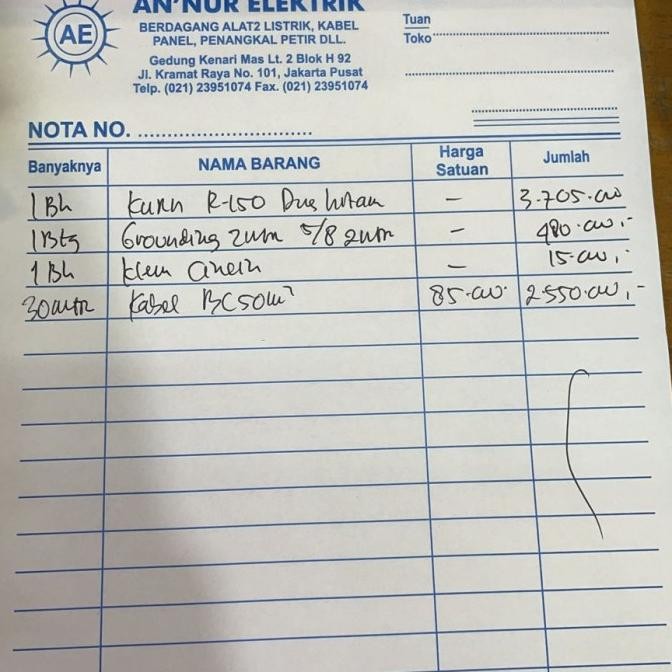 AN'NUR ELEKTRIK
AE
BERDAGANG ALAT2 LISTRIK, KABEL
PANEL, PENANGKAL PETIR DLL.
Gedung Kenari Mas Lt. 2 Blok H 92
Jl. Kramat Raya No. 101, Jakarta Pusat
Telp. (021) 23951074 Fax. (021) 23951074
Tuan
Toko
NOTA NO.
Banyaknya NAMA BARANG Harga Satuan Jumlah
1 Bh Kurn R-150 - 3.705.000
1 Btg Grounding 5/8 - 480.000,-
1 Bh Klem - 15.000,-
30 mtr Kabel BC 50m² 85.000 2.550.000,-